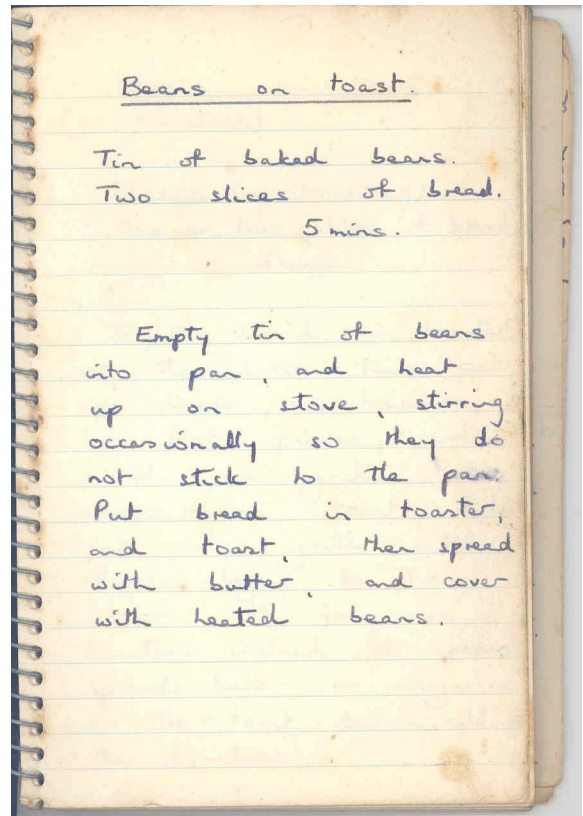 Beans on toast.
Tin of baked beans.
Two slices of bread.
5 mins.
Empty tin of beans
into pan, and heat
up on stove, stirring
occasionally so they do
not stick to the pan.
Put bread in toaster,
and toast, then spread
with butter, and cover
with heated beans.